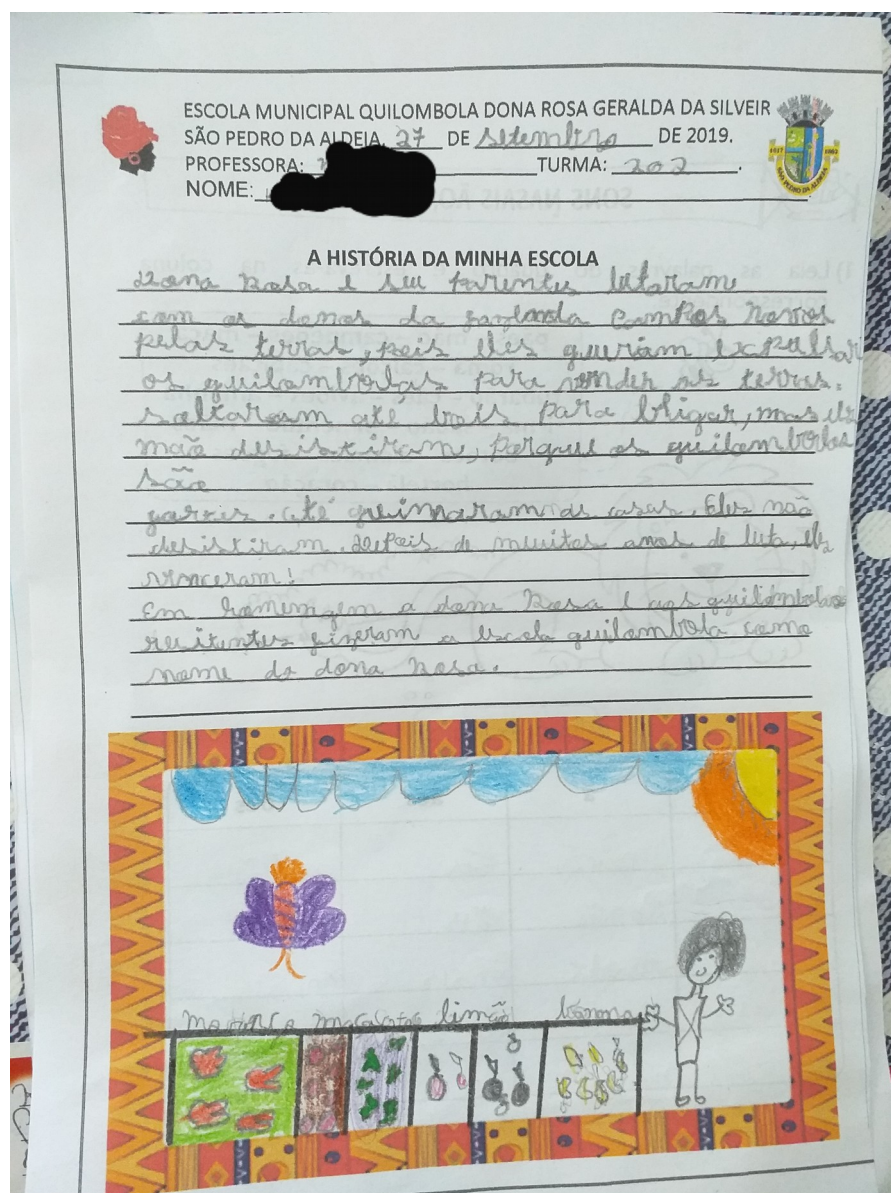 ESCOLA MUNICIPAL QUILOMBOLA DONA ROSA GERALDA DA SILVEIR
SÃO PEDRO DA ALDEIA, 27 DE Setembro DE 2019.
PROFESSORA: TURMA: 202.
NOME:
A HISTÓRIA DA MINHA ESCOLA
Dona Rosa e seu parentes lutaram
com os donos da fazenda Campos Novos
pelas terras, pois eles queriam expulsar
os quilombolas para vender as terras.
Soltaram até bois para brigar, mas eles
não desistiram, porque os quilombolas
são
garris. Até queimaram as casas. Eles não
desistiram. Depois de muitos anos de luta, eles
venceram!
Em homenagem a dona Rosa e aos quilombolas
resitentes fizeram a escola quilombola como
nome da dona Rosa.
limão